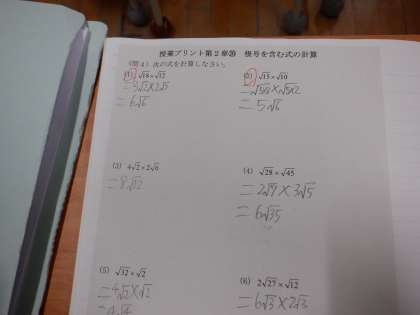 授業プリント第2章⑳ 根号を含む式の計算
(問4) 次の式を計算しなさい。
(1) √18×√12
=3√2×2√3
=6√6
(2) √15×√10
=√5×3×√5×2
=5√6
(3) 4√2×2√6
=8√12
(4) √28×√45
=2√7×3√5
=6√35
(5) √32×√2
=4√2×√2
=4√4
(6) 2√27×√12
=6√3×2√3